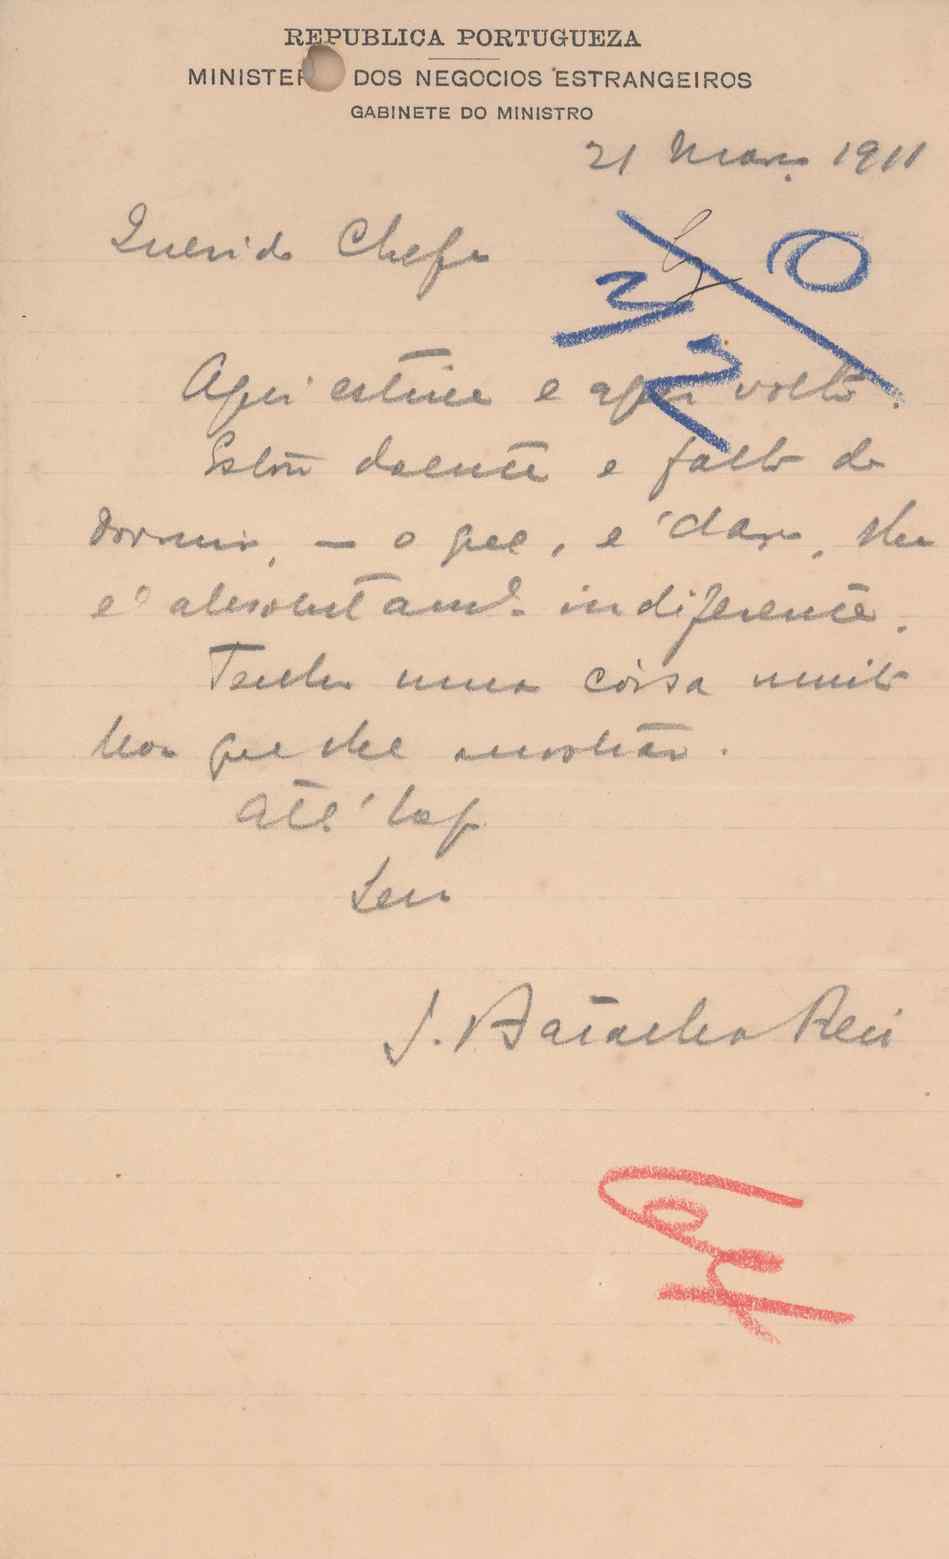 REPUBLICA PORTUGUEZA
MINISTER DOS NEGOCIOS ESTRANGEIROS
GABINETE DO MINISTRO
21 Março 1911
Querido Chefe
Aqui estive e aqui volto.
Estou doente e falto de
dormir, — o que, é claro, lhe
é absolutamte. indiferente.
Tenho uma coisa muito
boa que lhe mostrar.
Até logo
Seu
J. Batalha Reis